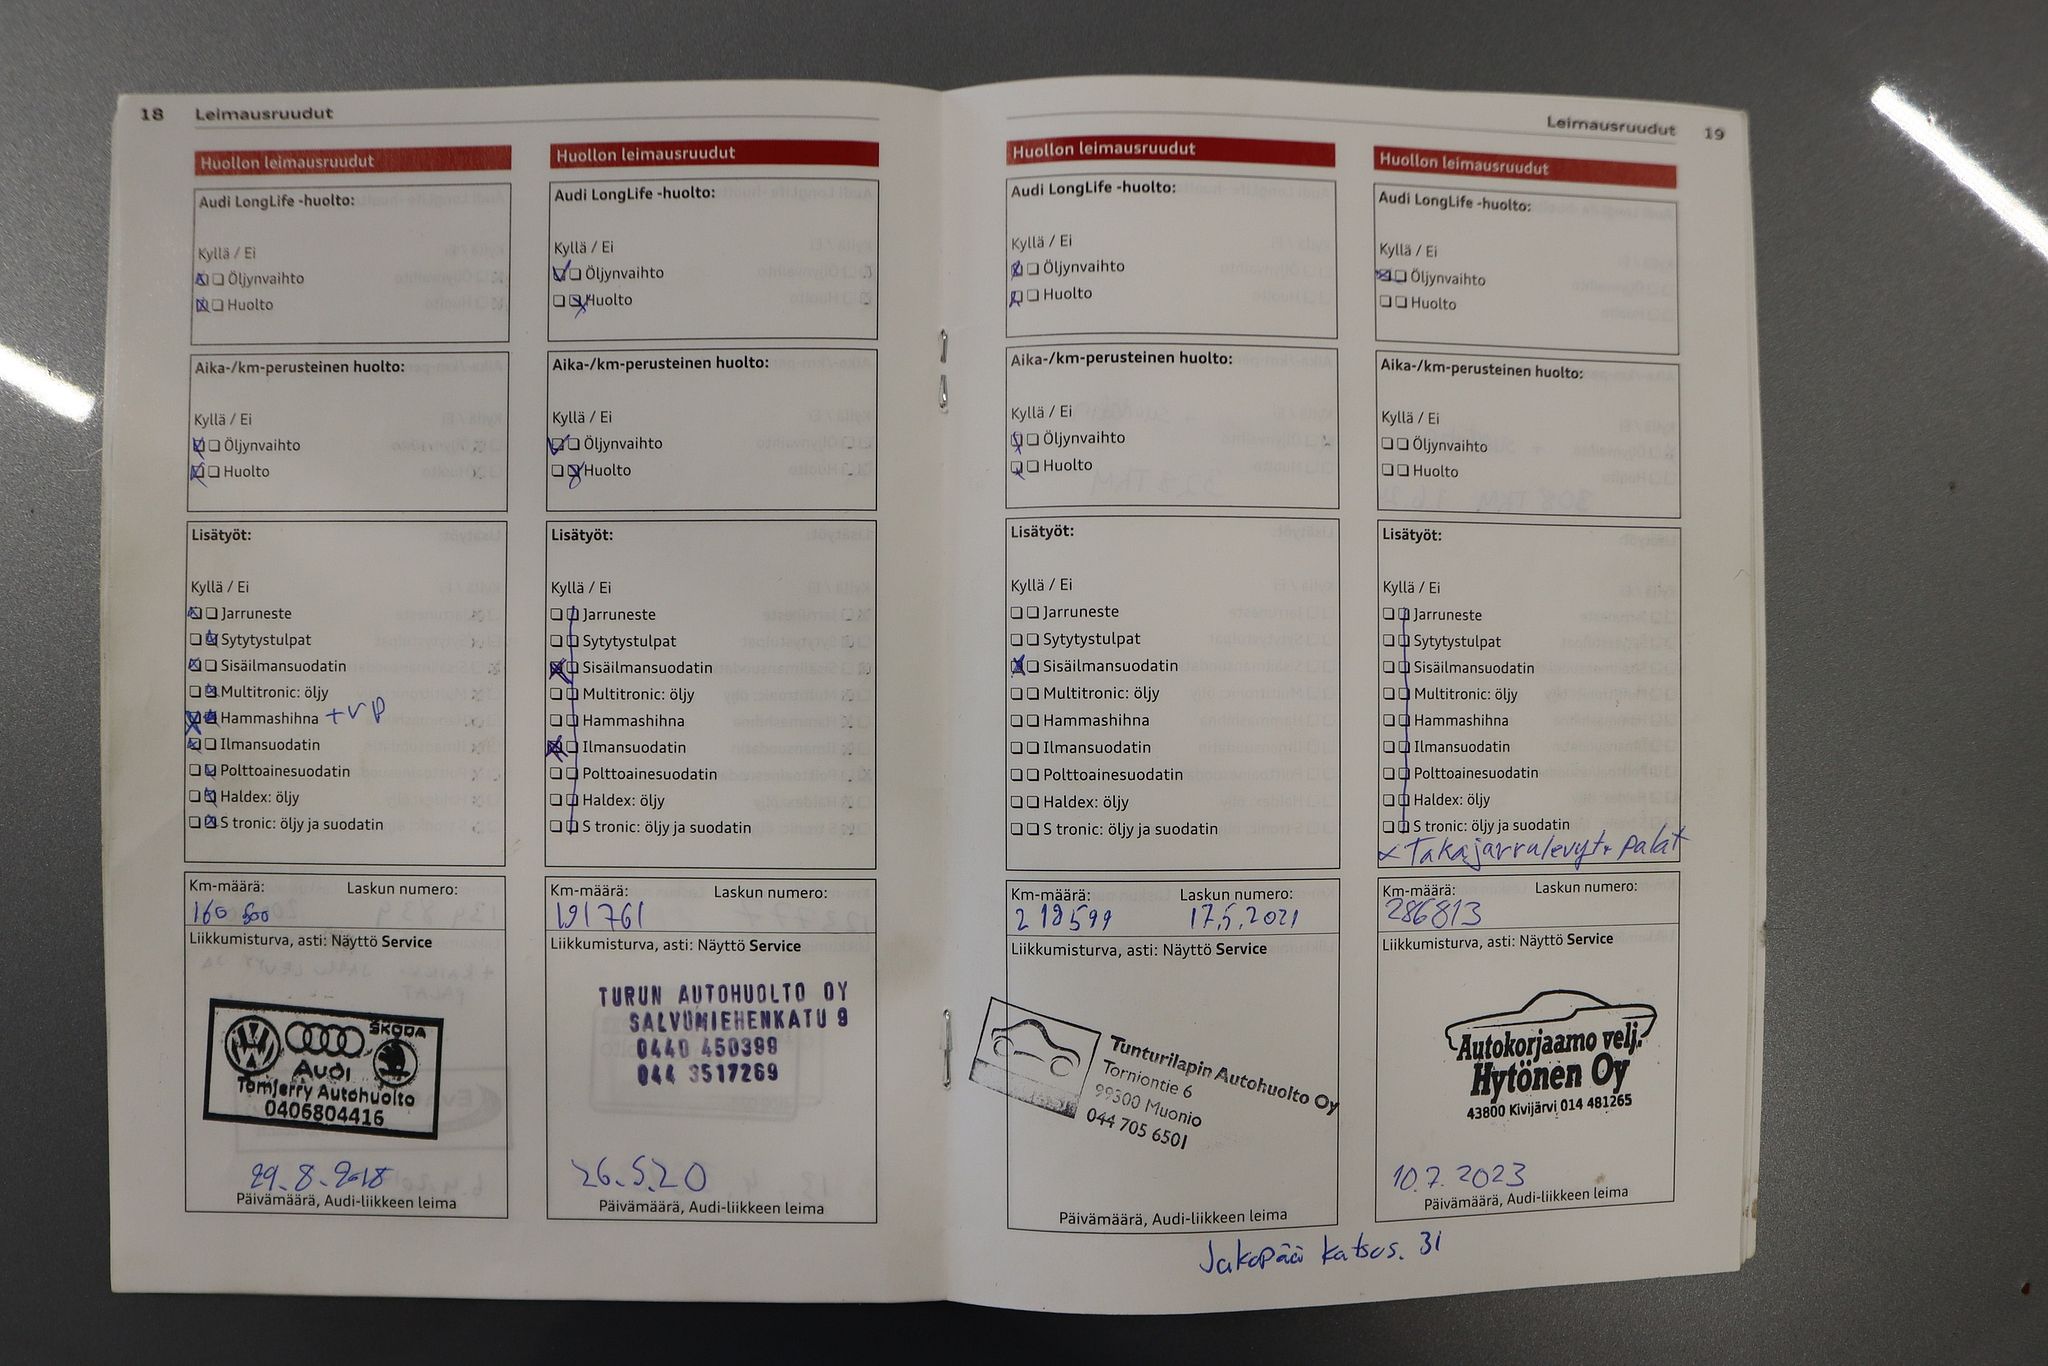 18 Leimausruudut
Huollon leimausruudut
Audi LongLife -huolto:
Kyllä / Ei
Öljynvaihto
Huolto
Aika-/km-perusteinen huolto:
Kyllä / Ei
Öljynvaihto
Huolto
Lisätyöt:
Kyllä / Ei
Jarruneste
Sytytystulpat
Sisäilmansuodatin
Multitronic: öljy
Hammashihna +VP
Ilmansuodatin
Polttoainesuodatin
Haldex: öljy
S tronic: öljy ja suodatin
Km-määrä: Laskun numero:
160 500
Liikkumisturva, asti: Näyttö Service
ŠKODA
Audi
TomJerry Autohuolto
0406804416
29.8.2018
Päivämäärä, Audi-liikkeen leima
Huollon leimausruudut
Audi LongLife -huolto:
Kyllä / Ei
Öljynvaihto
Huolto
Aika-/km-perusteinen huolto:
Kyllä / Ei
Öljynvaihto
Huolto
Lisätyöt:
Kyllä / Ei
Jarruneste
Sytytystulpat
Sisäilmansuodatin
Multitronic: öljy
Hammashihna
Ilmansuodatin
Polttoainesuodatin
Haldex: öljy
S tronic: öljy ja suodatin
Km-määrä: Laskun numero:
191761
Liikkumisturva, asti: Näyttö Service
TURUN AUTOHUOLTO OY
SALVUMIEHENKATU 9
0440 450399
044 3517269
26.5.20
Päivämäärä, Audi-liikkeen leima
Leimausruudut 19
Huollon leimausruudut
Audi LongLife -huolto:
Kyllä / Ei
Öljynvaihto
Huolto
Aika-/km-perusteinen huolto:
Kyllä / Ei
Öljynvaihto
Huolto
Lisätyöt:
Kyllä / Ei
Jarruneste
Sytytystulpat
Sisäilmansuodatin
Multitronic: öljy
Hammashihna
Ilmansuodatin
Polttoainesuodatin
Haldex: öljy
S tronic: öljy ja suodatin
Km-määrä: Laskun numero:
218599 17.5.2021
Liikkumisturva, asti: Näyttö Service
Tunturilapin Autohuolto Oy
Torniontie 6
99300 Muonio
044 705 6501
Päivämäärä, Audi-liikkeen leima
Huollon leimausruudut
Audi LongLife -huolto:
Kyllä / Ei
Öljynvaihto
Huolto
Aika-/km-perusteinen huolto:
Kyllä / Ei
Öljynvaihto
Huolto
Lisätyöt:
Kyllä / Ei
Jarruneste
Sytytystulpat
Sisäilmansuodatin
Multitronic: öljy
Hammashihna
Ilmansuodatin
Polttoainesuodatin
Haldex: öljy
S tronic: öljy ja suodatin
x Takajarrulevyt+ palat
Km-määrä: Laskun numero:
286813
Liikkumisturva, asti: Näyttö Service
Autokorjaamo velj.
Hytönen Oy
43800 Kivijärvi 014 481265
10.7.2023
Päivämäärä, Audi-liikkeen leima
Jakopää katso s. 31